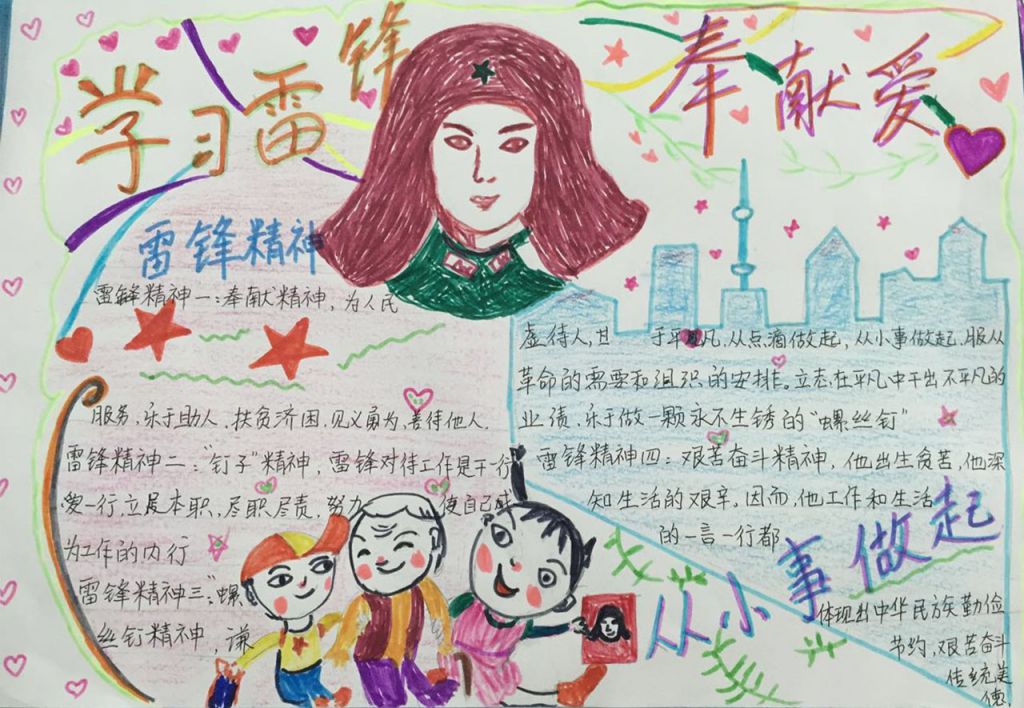 学习雷锋
奉献爱
雷锋精神
雷锋精神一:奉献精神,为人民
服务,乐于助人,扶负济困,见义勇为,善待他人.
雷锋精神二:“钉子”精神,雷锋对待工作是干一行
爱一行,立足本职,尽职尽责,努力 使自己成
为工作的内行
雷锋精神三:“螺
丝钉精神,谦
虚待人,甘 于平凡,从点滴做起,从小事做起,服从
革命的需要和组织的安排。立志在平凡中干出不平凡的
业绩,乐于做一颗永不生锈的“螺丝钉”
雷锋精神四:艰苦奋斗精神,他出生贫苦,他深
知生活的艰辛。因而,他工作和生活
的一言一行都
体现出中华民族勤俭
节约,艰苦奋斗
传统美
德.
从小事做起